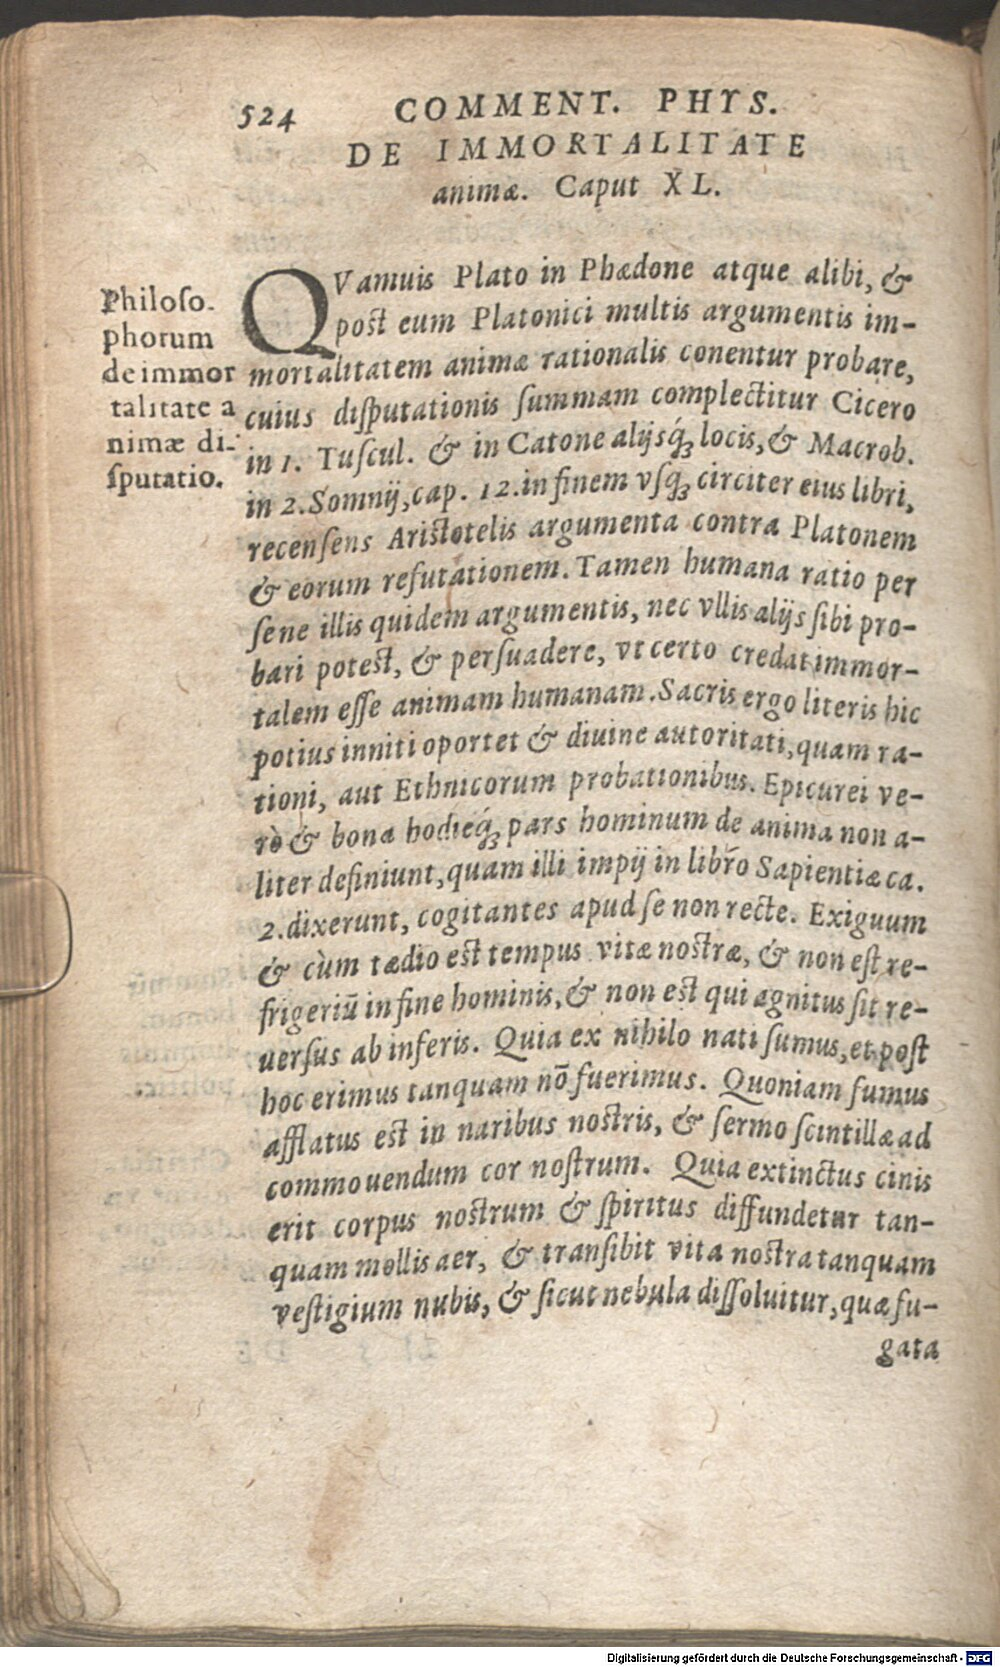 524
COMMENT. PHYS.
DE IMMORTALITATE
animæ. Caput XL.
Philoso-
phorum
de immor
talitate a
nimæ di-
sputatio.
QVamuis Plato in Phædone atque alibi, &
post eum Platonici multis argumentis im-
mortalitatem animæ rationalis conentur probare,
cuius disputationis summam complectitur Cicero
in 1. Tuscul. & in Catone alijsq́ꝫ locis, & Macrob.
in 2. Somnij, cap. 12. in finem vsq́ꝫ circiter eius libri,
recensens Aristotelis argumenta contra Platonem
& eorum refutationem. Tamen humana ratio per
sene illis quidem argumentis, nec vllis alijs sibi pro-
bari potest, & persuadere, vt certo credat immor-
talem esse animam humanam. Sacris ergo literis hic
potius inniti oportet & diuine autoritati, quam ra-
tioni, aut Ethnicorum probationibus. Epicurei ve-
rò & bona hodieq́ꝫ pars hominum de anima non a-
liter definiunt, quam illi impij in libro Sapientiæ ca.
2. dixerunt, cogitantes apud se non recte. Exiguum
& cùm tædio est tempus vitæ nostræ, & non est re-
frigeriū in fine hominis, & non est qui agnitus sit re-
uersus ab inferis. Quia ex nihilo nati sumus, et post
hoc erimus tanquam nō fuerimus. Quoniam fumus
afflatus est in naribus nostris, & sermo scintillæ ad
commouendum cor nostrum. Quia extinctus cinis
erit corpus nostrum & spiritus diffundetur tan-
quam mollis aer, & transibit vita nostra tanquam
vestigium nubis, & sicut nebula dissoluitur, quæ fu-
gata
Digitalisierung gefördert durch die Deutsche Forschungsgemeinschaft - DFG